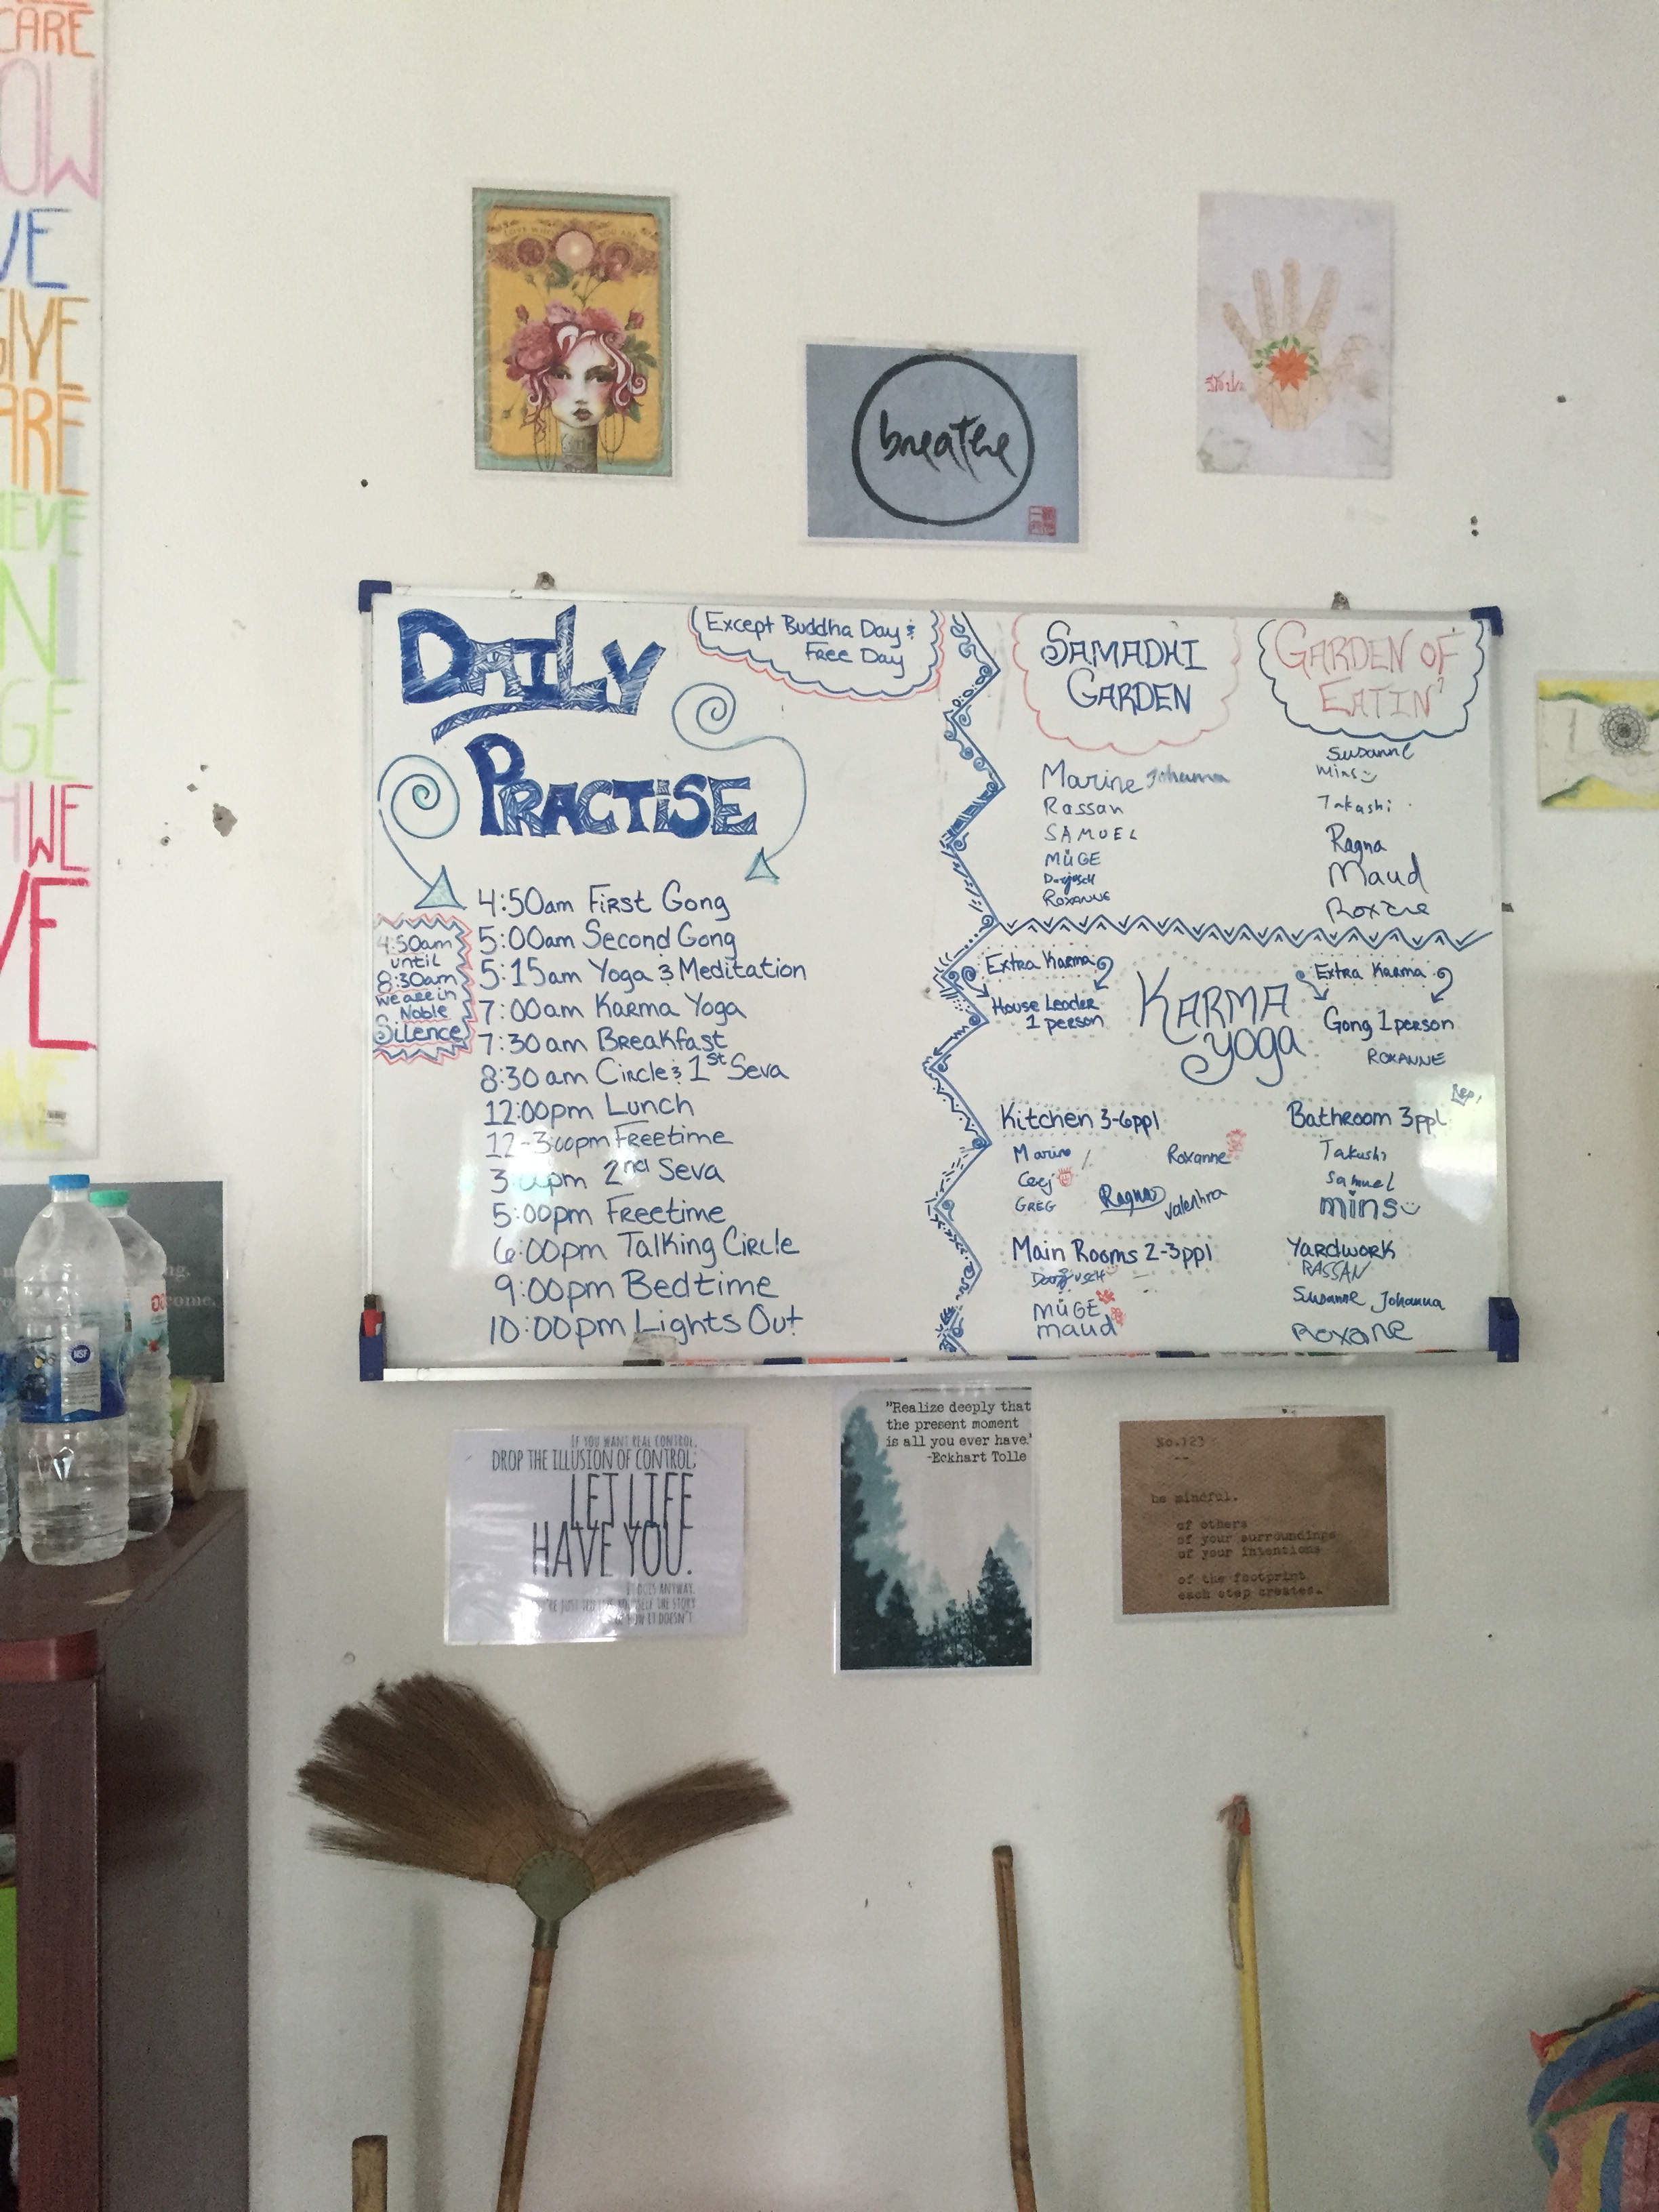 CARE
OW
VE
GIVE
ARE
IEVE
N
GE
WE
VE
breathe
DAILY
PRACTISE
Except Buddha Day &
Free Day
4:50am
until
8:30am
we are in
Noble
Silence
4:50am First Gong
5:00am Second Gong
5:15am Yoga & Meditation
7:00am Karma Yoga
7:30am Breakfast
8:30am Circle & 1st Seva
12:00pm Lunch
12-3:00pm Freetime
3 pm 2nd Seva
5:00pm Freetime
6:00pm Talking Circle
9:00pm Bedtime
10:00pm Lights Out
SAMADHI
GARDEN
Marine Johanna
Rassan
SAMUEL
MÜGE
ROXANNE
GARDEN OF
EATIN'
Susanne
mins
Takashi
Ragna
Maud
Roxane
Extra Karma
House Leader
1 person
KARMA
yoga
Extra Karma
Gong 1 person
ROXANNE
Kitchen 3-6ppl
Marine
Roxanne
Ceej
GREG
Ragna
Bathroom 3ppl
Takushi
Samuel
mins
Main Rooms 2-3ppl
MÜGE
maud
Yardwork
RASSAN
Susanne Johanna
Roxane
ng.
come.
NSF
IF YOU WANT REAL CONTROL,
DROP THE ILLUSION OF CONTROL;
LET LIFE
HAVE YOU.
IT DOES ANYWAY.
"Realize deeply that
the present moment
is all you ever have."
-Eckhart Tolle
No.123
--
be mindful.
of others
of your surroundings
of your intentions
of the footprint
each step creates.